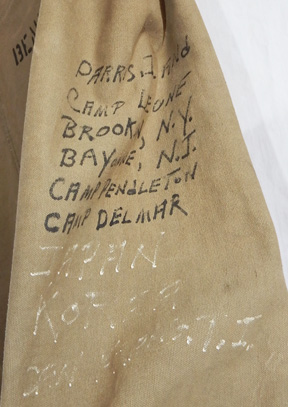 PARRIS I
CAMP LEUNE
BROOK, N.Y.
BAYONNE, N.J.
CAMP PENDLETON
CAMP DELMAR
JAPAN
KOREA